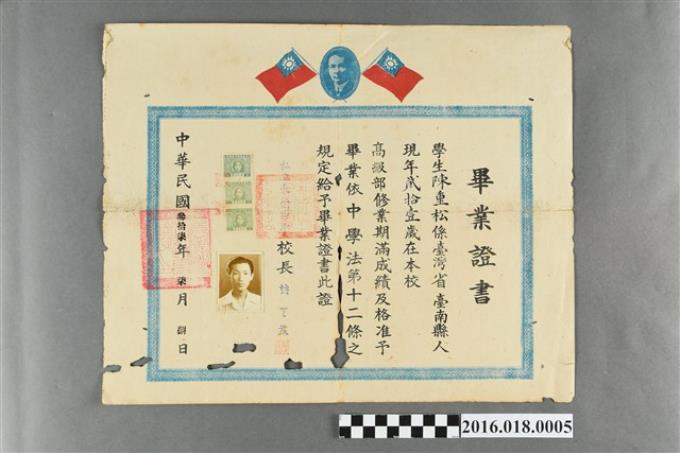 畢業證書
學生陳重松係臺灣省臺南縣人
現年貳拾壹歲在本校
高級部修業期滿成績及格准予
畢業依中學法第十二條之
規定給予畢業證書此證
校長
中華民國叁拾柒年柒月 日
2016.018.0005